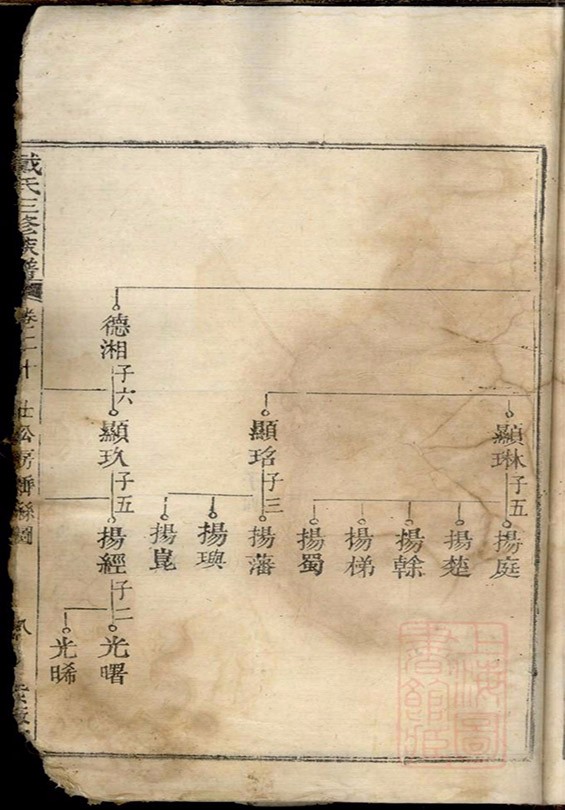 顯琳 子五
揚庭
揚楚
揚榦
揚梯
揚蜀
顯珆 子三
揚藩
揚璵
揚崑
德湘 子六
顯玖 子五
揚經 子二
光曙
光晞
戴氏三修族譜
卷二十
仕公房
上海圖書館藏